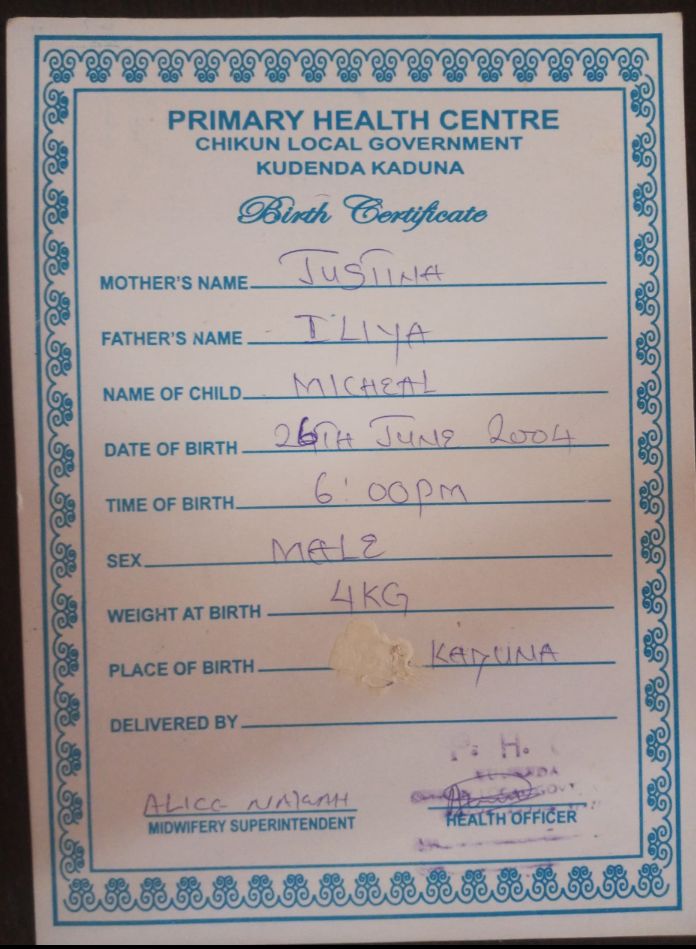 PRIMARY HEALTH CENTRE
CHIKUN LOCAL GOVERNMENT
KUDENDA KADUNA
Birth Certificate
MOTHER'S NAME JUSTINA
FATHER'S NAME ILIYA
NAME OF CHILD MICHEAL
DATE OF BIRTH 26TH JUNE 2004
TIME OF BIRTH 6:00PM
SEX MALE
WEIGHT AT BIRTH 4KG
PLACE OF BIRTH KADUNA
DELIVERED BY
P. H.
ALICE
MIDWIFERY SUPERINTENDENT
HEALTH OFFICER